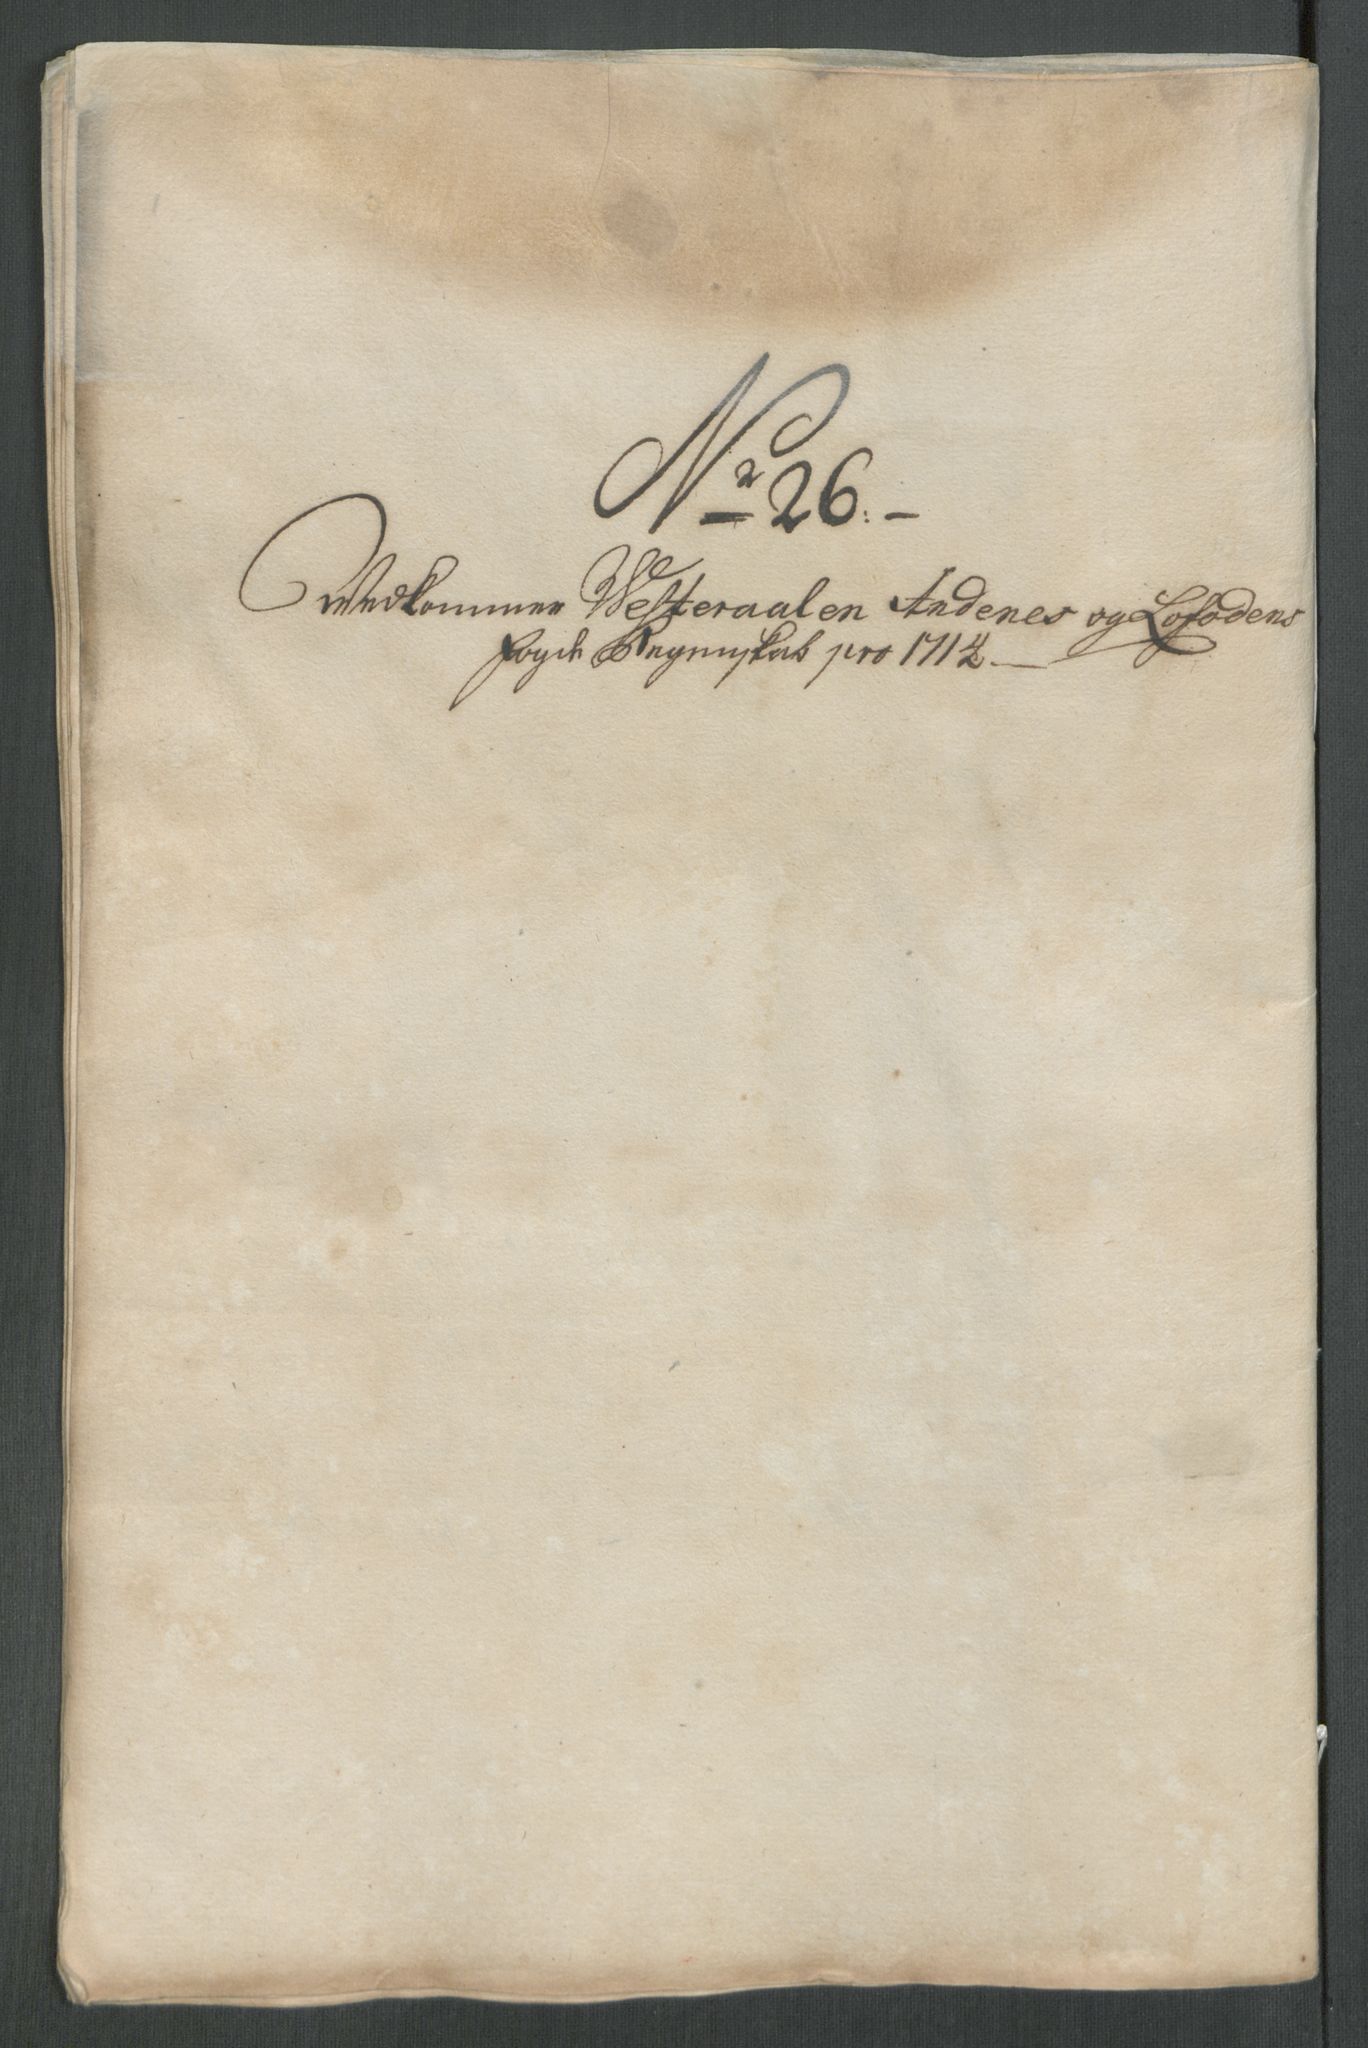 No 26:-
Vedkommer Westeraalen Andenes og Lofodens
fogd Regnskab pro 1714